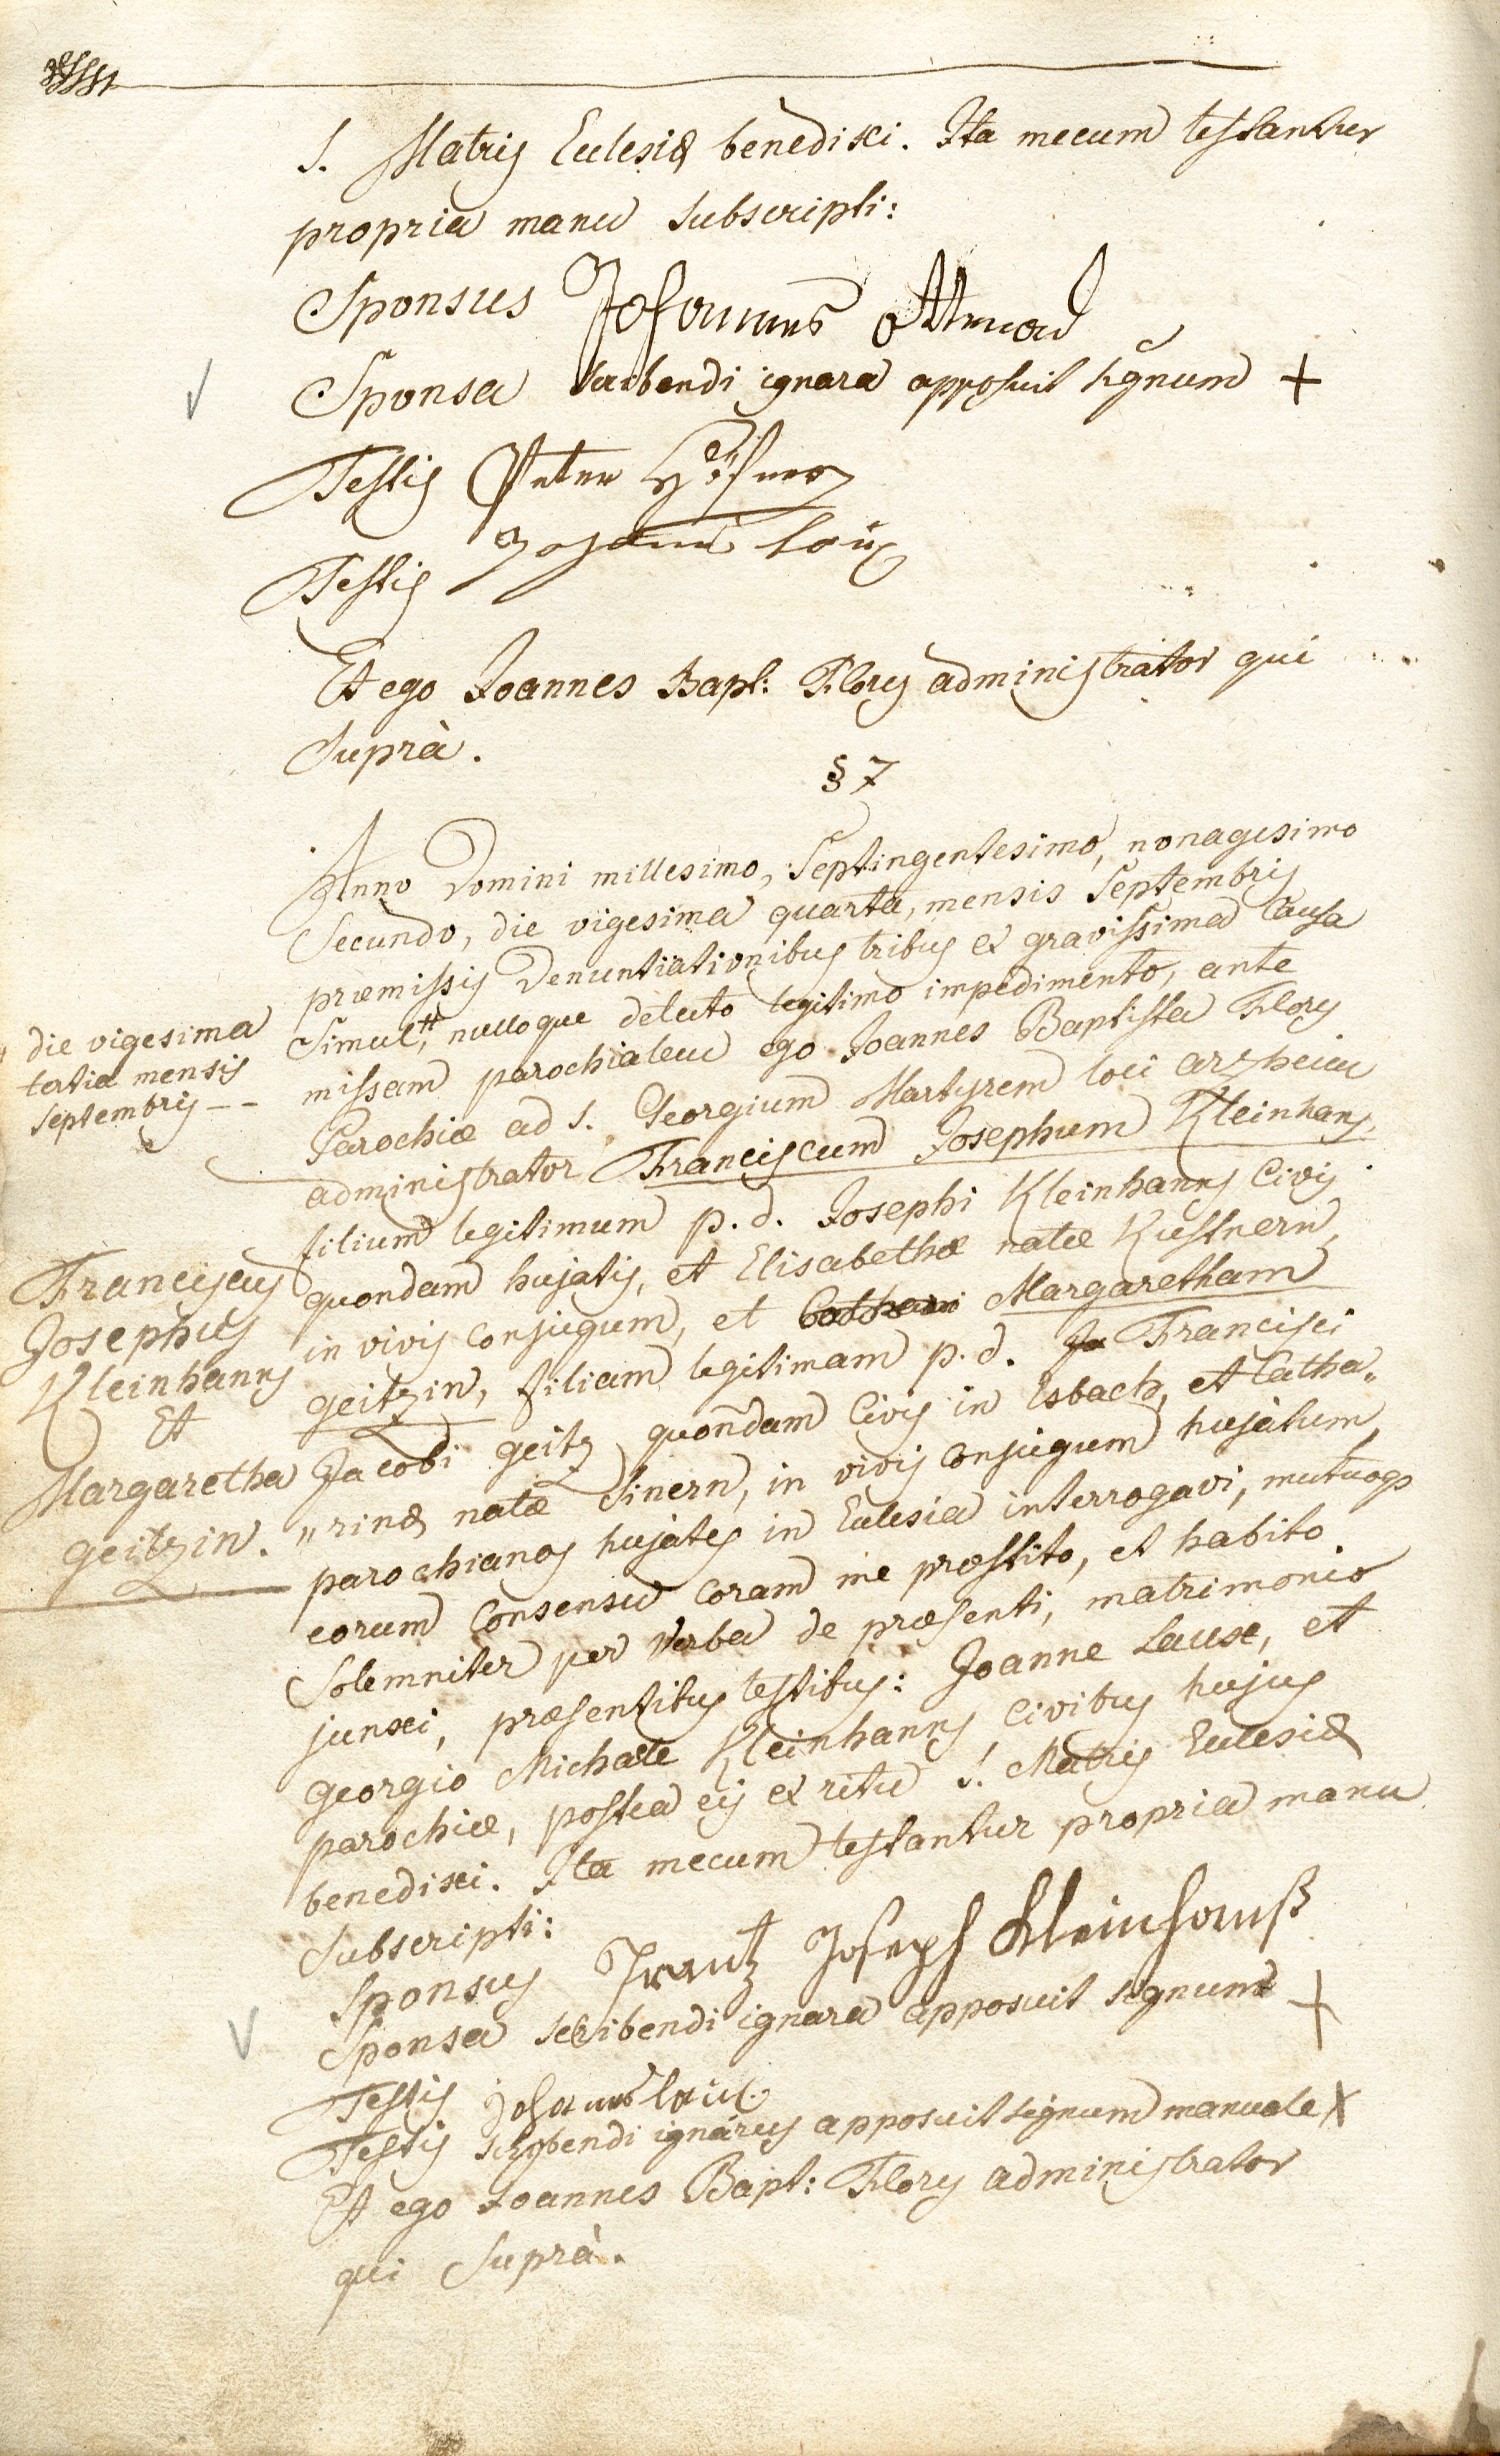 S. Matris Ecclesiæ benedixi. Ita mecum testantur
propria manu subscripti:
Sponsus Johannes
Sponsa scribendi ignara apposuit signum +
Testis Peter
Testis Johannes
Et ego Joannes Bapt: Flory administrator qui
suprà.
§ 7
Anno Domini millesimo, Septingentesimo, nonagesimo
Secundo, die vigesima quarta, mensis Septembris
præmissis Denuntiationibus tribus ex gravissima Causa
Simul, # nulloque detecto legitimo impedimento, ante
missam parochialem ego Joannes Baptista Flory
Parochiæ ad S. Georgium Martyrem loci arzheim
administrator Franciscum Josephum Kleinhans
filium legitimum p.d. Josephi Kleinhanns Civis
quondam hujatis, et Elisabethæ natæ Küstnern,
in vivis Conjugum, et Margaretham
geitzin, filiam legitimam p.d. Francisci
Jacobi geitz quondam Civis in Esbach, et Catha„
„rinæ natæ Sinern, in vivis Conjugum hujatum,
parochianos hujates in Ecclesia interrogavi, mutuoqs
eorum Consensu Coram me præstito, et habito
Solemniter per Verba de præsenti, matrimonio
junxi, præsentibus testibus: Joanne Laux, et
georgio Michaele Kleinhanns Civibus hujus
parochiæ, postea eis ex ritu S. Matris Ecclesiæ
benedixi. Ita mecum testantur propria manu
Subscripti:
Sponsus Frantz Joseph Kleinhanß
Sponsa scribendi ignara apposuit signum +
Testis Johannes laux
Testis scribendi ignarus apposuit signum manuale X
Et ego Joannes Bapt: Flory administrator
qui Suprà.
die vigesima
tertia mensis
septembris --
Franciscus
Josephus
Kleinhanns
Et
Margaretha
geitzin.